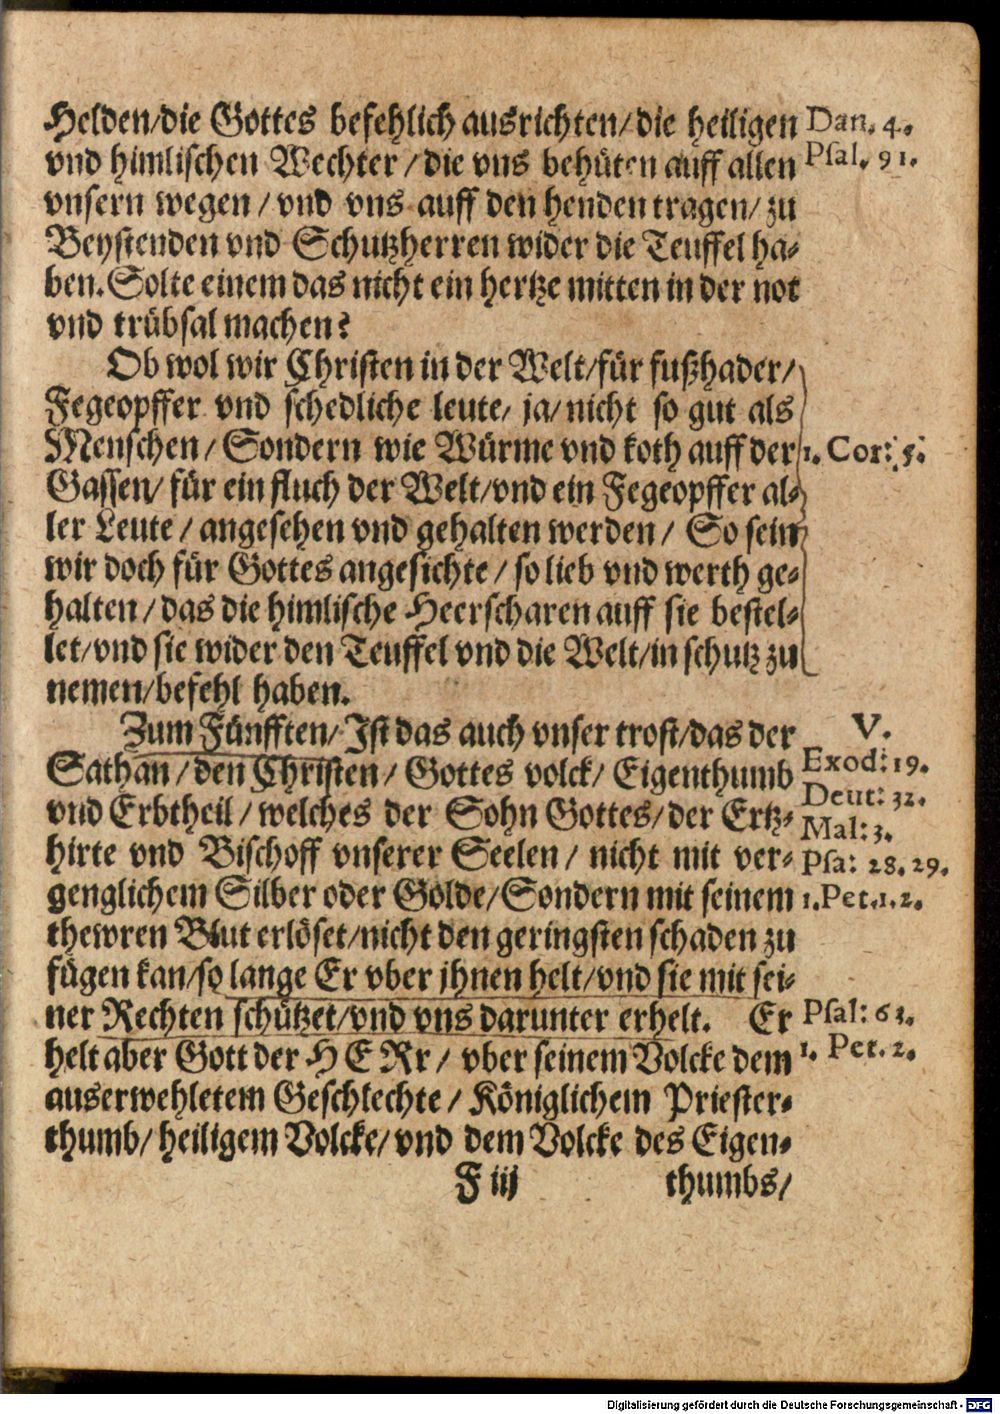 Helden/die Gottes befehlich ausrichten/die heiligen Dan. 4.
vnd himlischen Wechter/die vns behüten auff allen Psal. 91.
vnsern wegen/vnd vns auff den henden tragen/zu
Beystenden vnd Schutzherren wider die Teuffel ha-
ben. Solte einem das nicht ein hertze mitten in der not
vnd trübsal machen?
Ob wol wir Christen in der Welt/für fußhader/
Fegeopffer vnd schedliche leute/ja/nicht so gut als
Menschen/Sondern wie Würme vnd koth auff der 1. Cor: 5.
Gassen/für ein fluch der Welt/vnd ein Fegeopffer al-
ler Leute/angesehen vnd gehalten werden/So sein
wir doch für Gottes angesichte/so lieb vnd werth ge-
halten/das die himlische Heerscharen auff sie bestel-
let/vnd sie wider den Teuffel vnd die Welt/in schutz zu
nemen/befehl haben.
Zum Fünfften/Ist das auch vnser trost/das der V.
Sathan/den Christen/Gottes volck/Eigenthumb Exod: 19.
vnd Erbtheil/welches der Sohn Gottes/der Ertz- Deut: 32.
Mal: 3.
hirte vnd Bischoff vnserer Seelen/nicht mit ver- Psa: 28. 29.
genglichem Silber oder Golde/Sondern mit seinem 1. Pet. 1. 2.
thewren Blut erlöset/nicht den geringsten schaden zu
fügen kan/so lange Er vber jhnen helt/vnd sie mit sei-
ner Rechten schützet/vnd vns darunter erhelt. Er Psal: 61.
helt aber Gott der HERr/vber seinem Volcke dem 1. Pet. 2.
auserwehletem Geschlechte/Königlichem Priester-
thumb/heiligem Volcke/vnd dem Volcke des Eigen-
F iij thumbs/
Digitalisierung gefördert durch die Deutsche Forschungsgemeinschaft - DFG